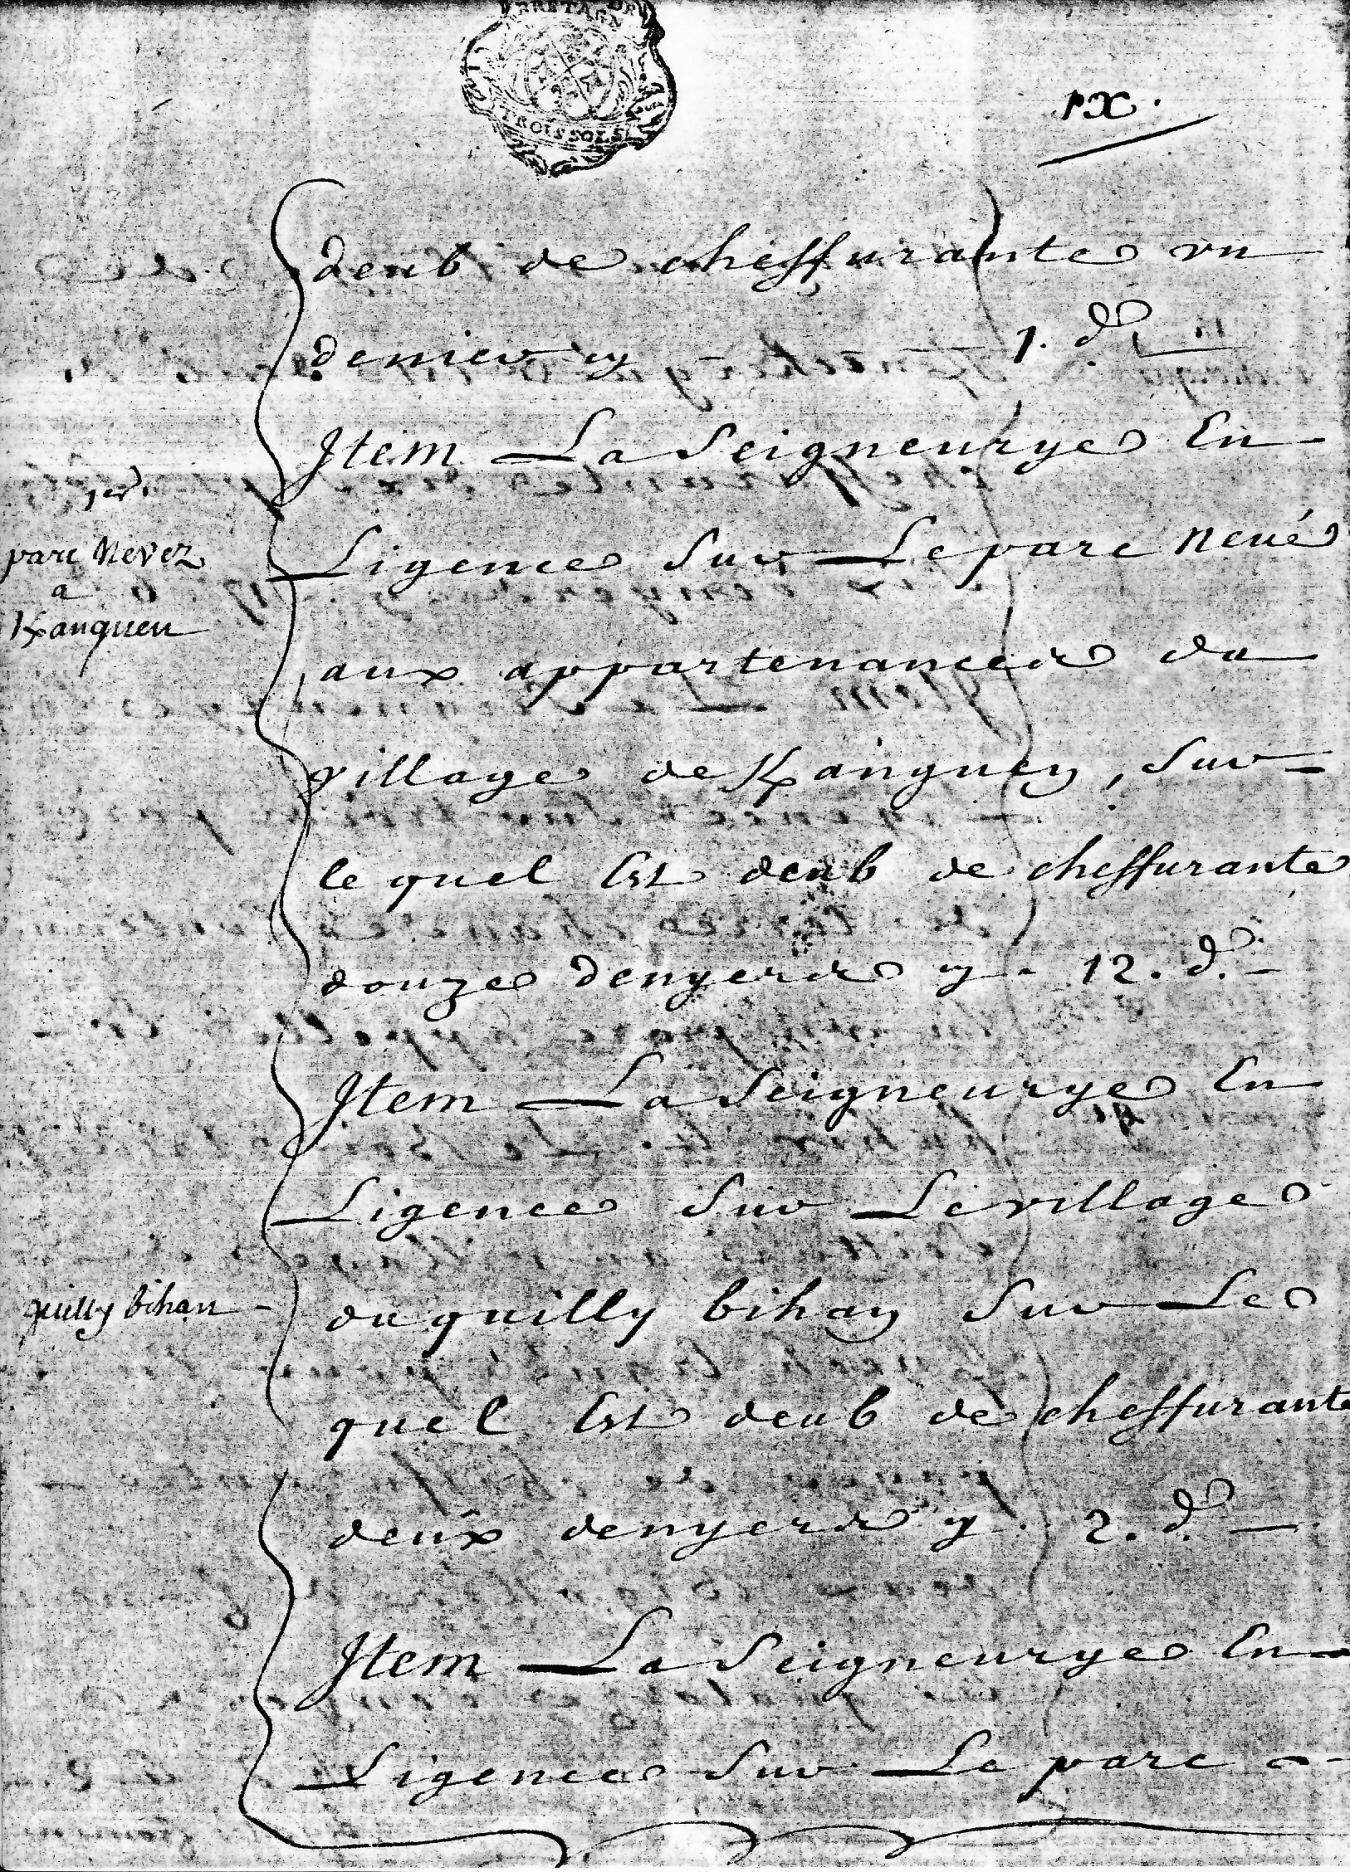 BRETAGNE
TROIS SOLS
IX.
deub de cheffurante un
denier cy 1. d.
Jtem La Seigneurye En
Ligence Sur Le parc neué
1er.
parc Nevez
a
Kanqueu
aux appartenances du
village de Kanguen, Sur
le quel Est deub de cheffurante
douze denyers cy 12. d.
Jtem La Seigneurye En
Ligence Sur Le village
quilly bihan
du quilly bihan Sur Le
quel Est deub de cheffurante
deux denyers cy 2. d.
Jtem La Seigneurye En
Ligence Sur Le parc